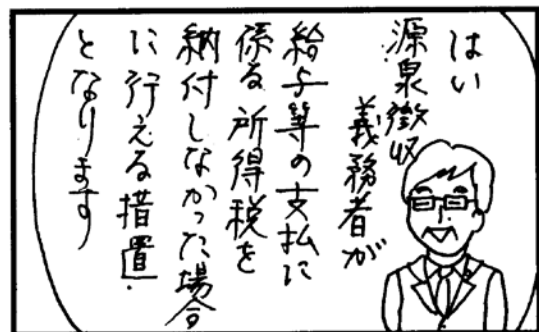 はい
源泉徴収
義務者が
給与等の支払に
係る所得税を
納付しなかった場合
に行える措置
となります